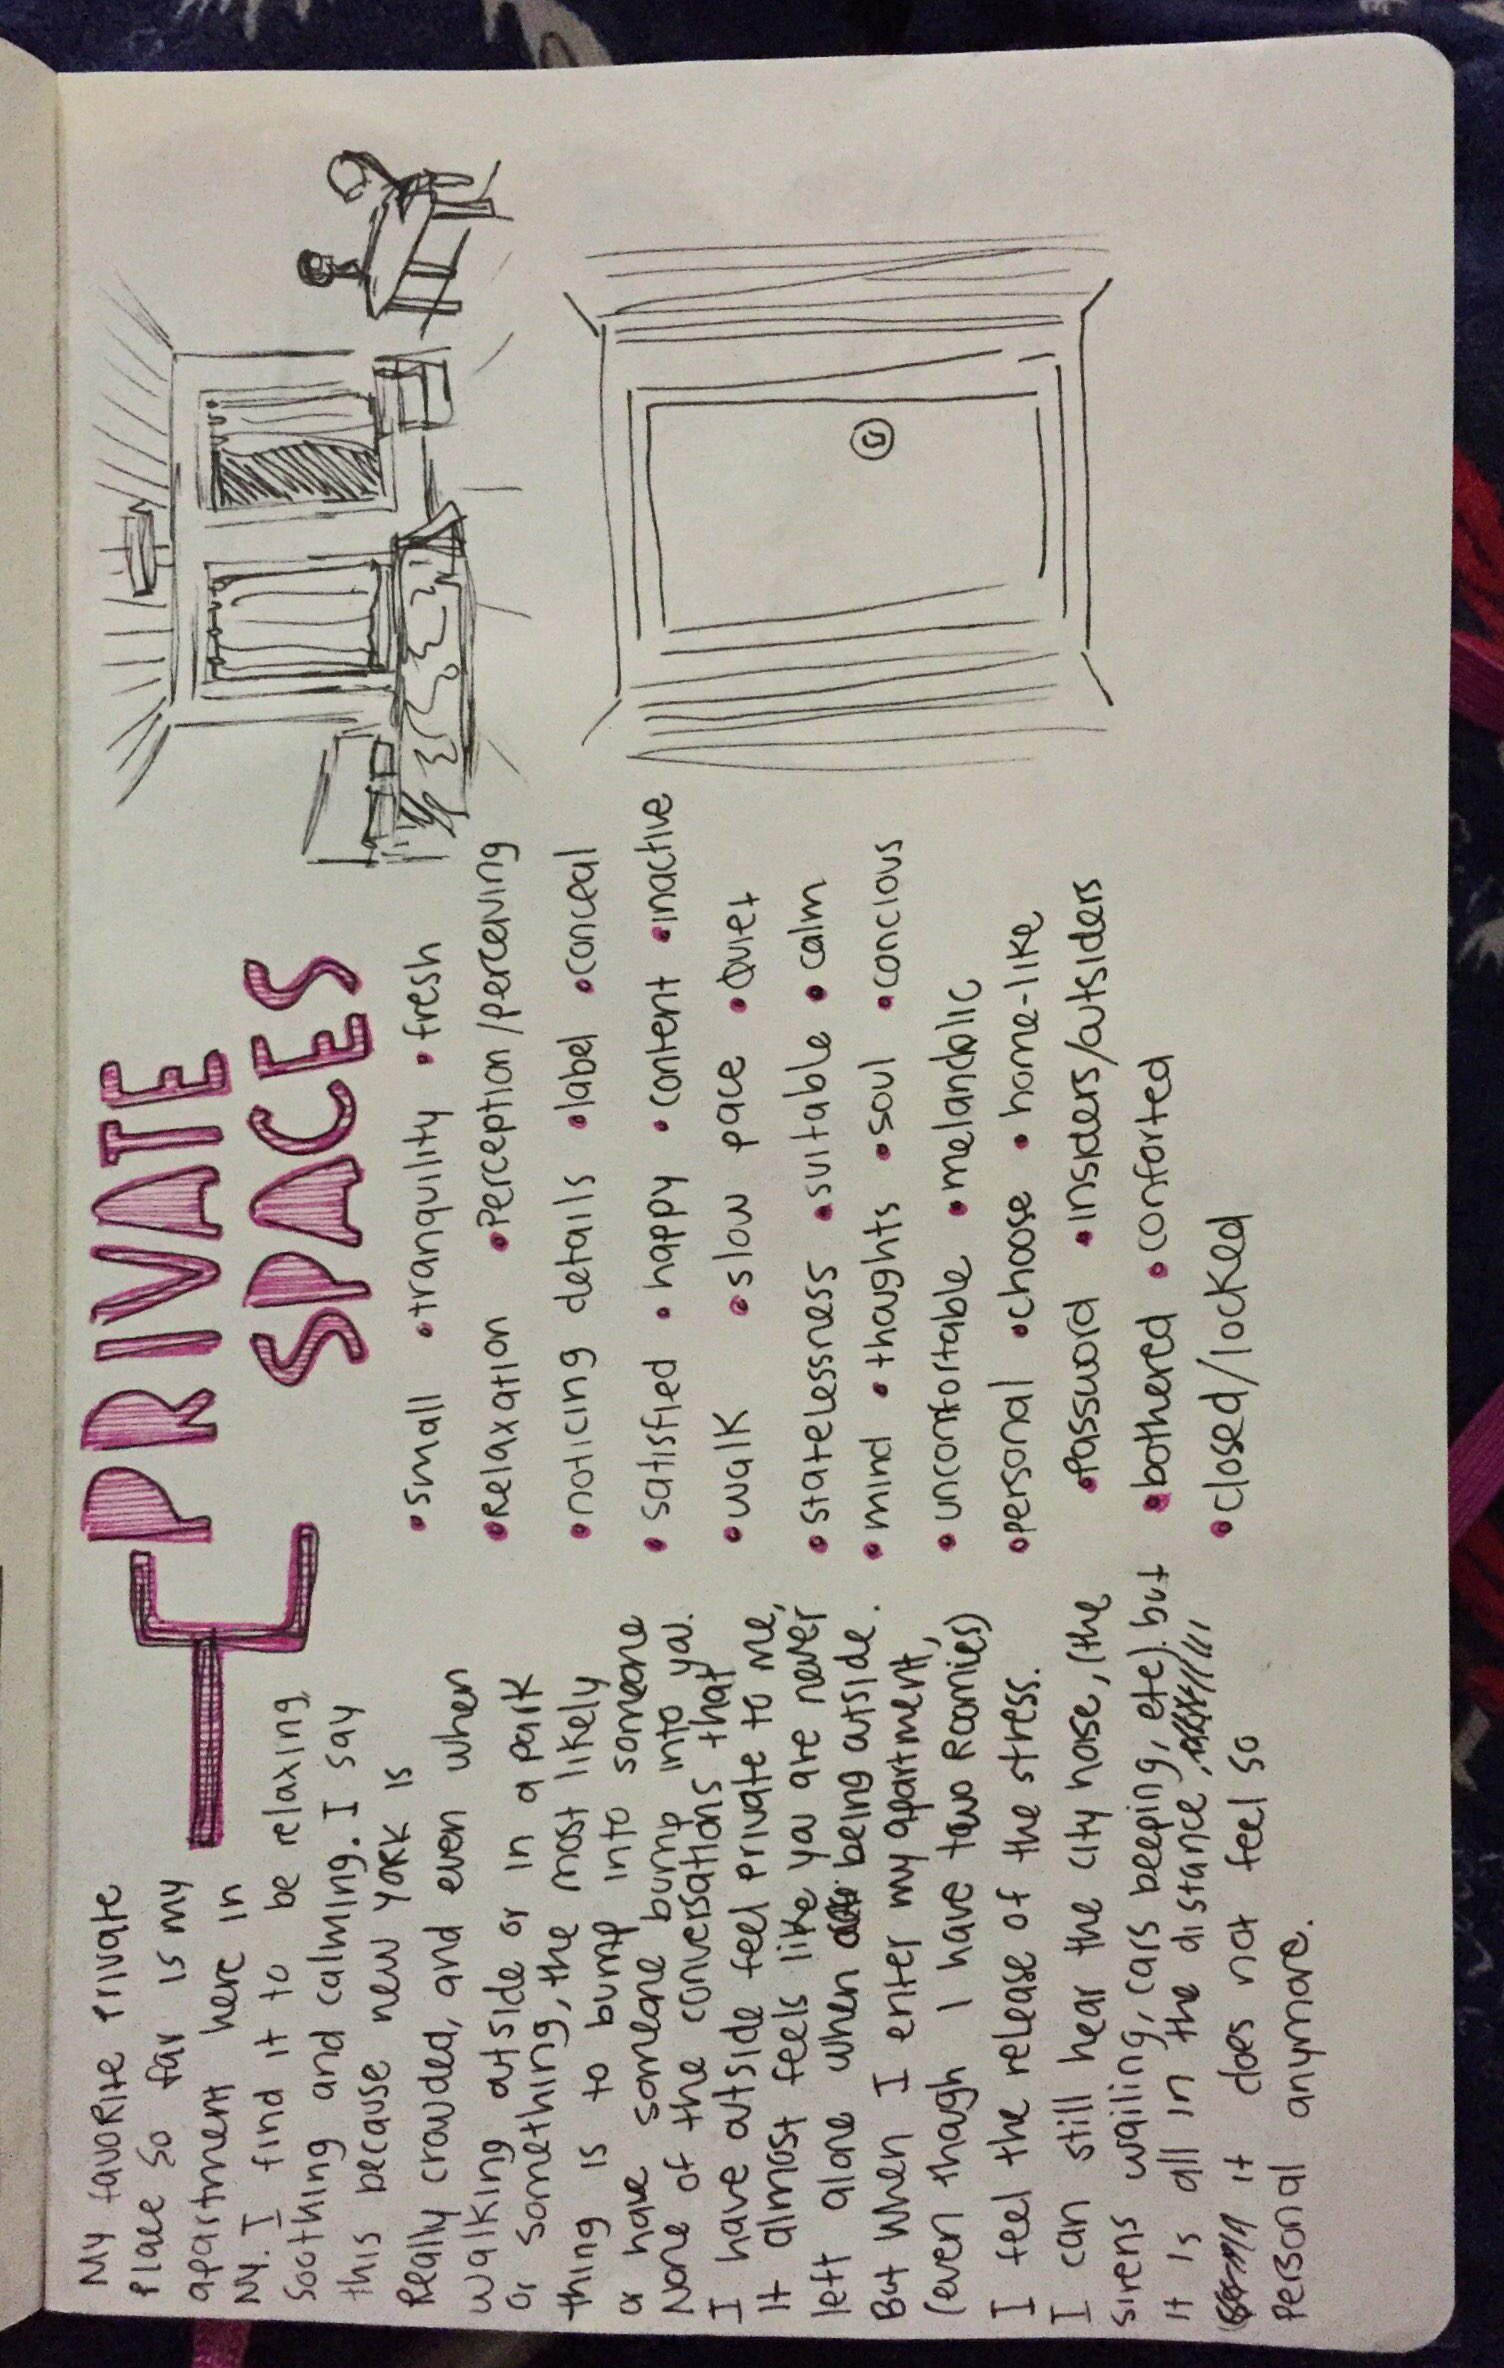 PRIVATE
SPACES
My favorite private
place so far is my
apartment here in
NY. I find it to be relaxing,
soothing and calming. I say
this because new york is
Really crowded, and even when
walking outside or in a park
or something, the most likely
thing is to bump into someone
or have someone bump into you.
None of the conversations that
I have outside feel private to me,
It almost feels like you are never
left alone when being outside.
But when I enter my apartment,
(even though I have two Roomies)
I feel the release of the stress.
I can still hear the city noise, (the
sirens wailing, cars beeping, etc) but
it is all in the distance,
it does not feel so
personal anymore.
•small •tranquility •fresh
•Relaxation •Perception/perceiving
•noticing details •label •conceal
•satisfied •happy •content •inactive
•walk •slow pace •Quiet
•statelessness •suitable •calm
•mind •thoughts •soul •concious
•unconfortable •melandolic
•personal •choose •home-like
•Password •insiders/outsiders
•bothered •conforted
•closed/locked